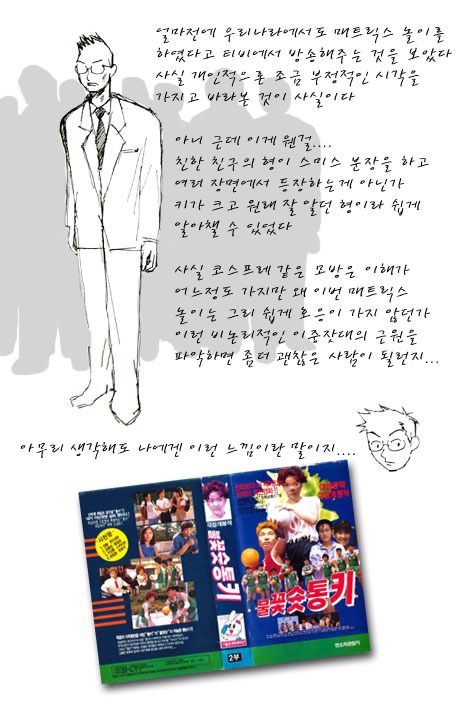 얼마전에 우리나라에서도 매트릭스 놀이를
하였다고 티비에서 방송해주는 것을 보았다
사실 개인적으론 조금 부정적인 시각을
가지고 바라본 것이 사실이다
아니 근데 이게 웬걸....
친한 친구의 형이 스미스 분장을 하고
여러 장면에서 등장하는게 아닌가
키가 크고 원래 잘 알던 형이라 쉽게
알아챌 수 있었다
사실 코스프레 같은 모방은 이해가
어느정도 가지만 왜 이번 매트릭스
놀이는 그리 쉽게 호응이 가지 않던가
이런 비논리적인 이중잣대의 근원을
파악하면 좀더 괜찮은 사람이 될런지...
아무리 생각해도 나에겐 이런 느낌이란 말이지....
극장개봉작
불꽃슛통키
2부
불꽃슛통키